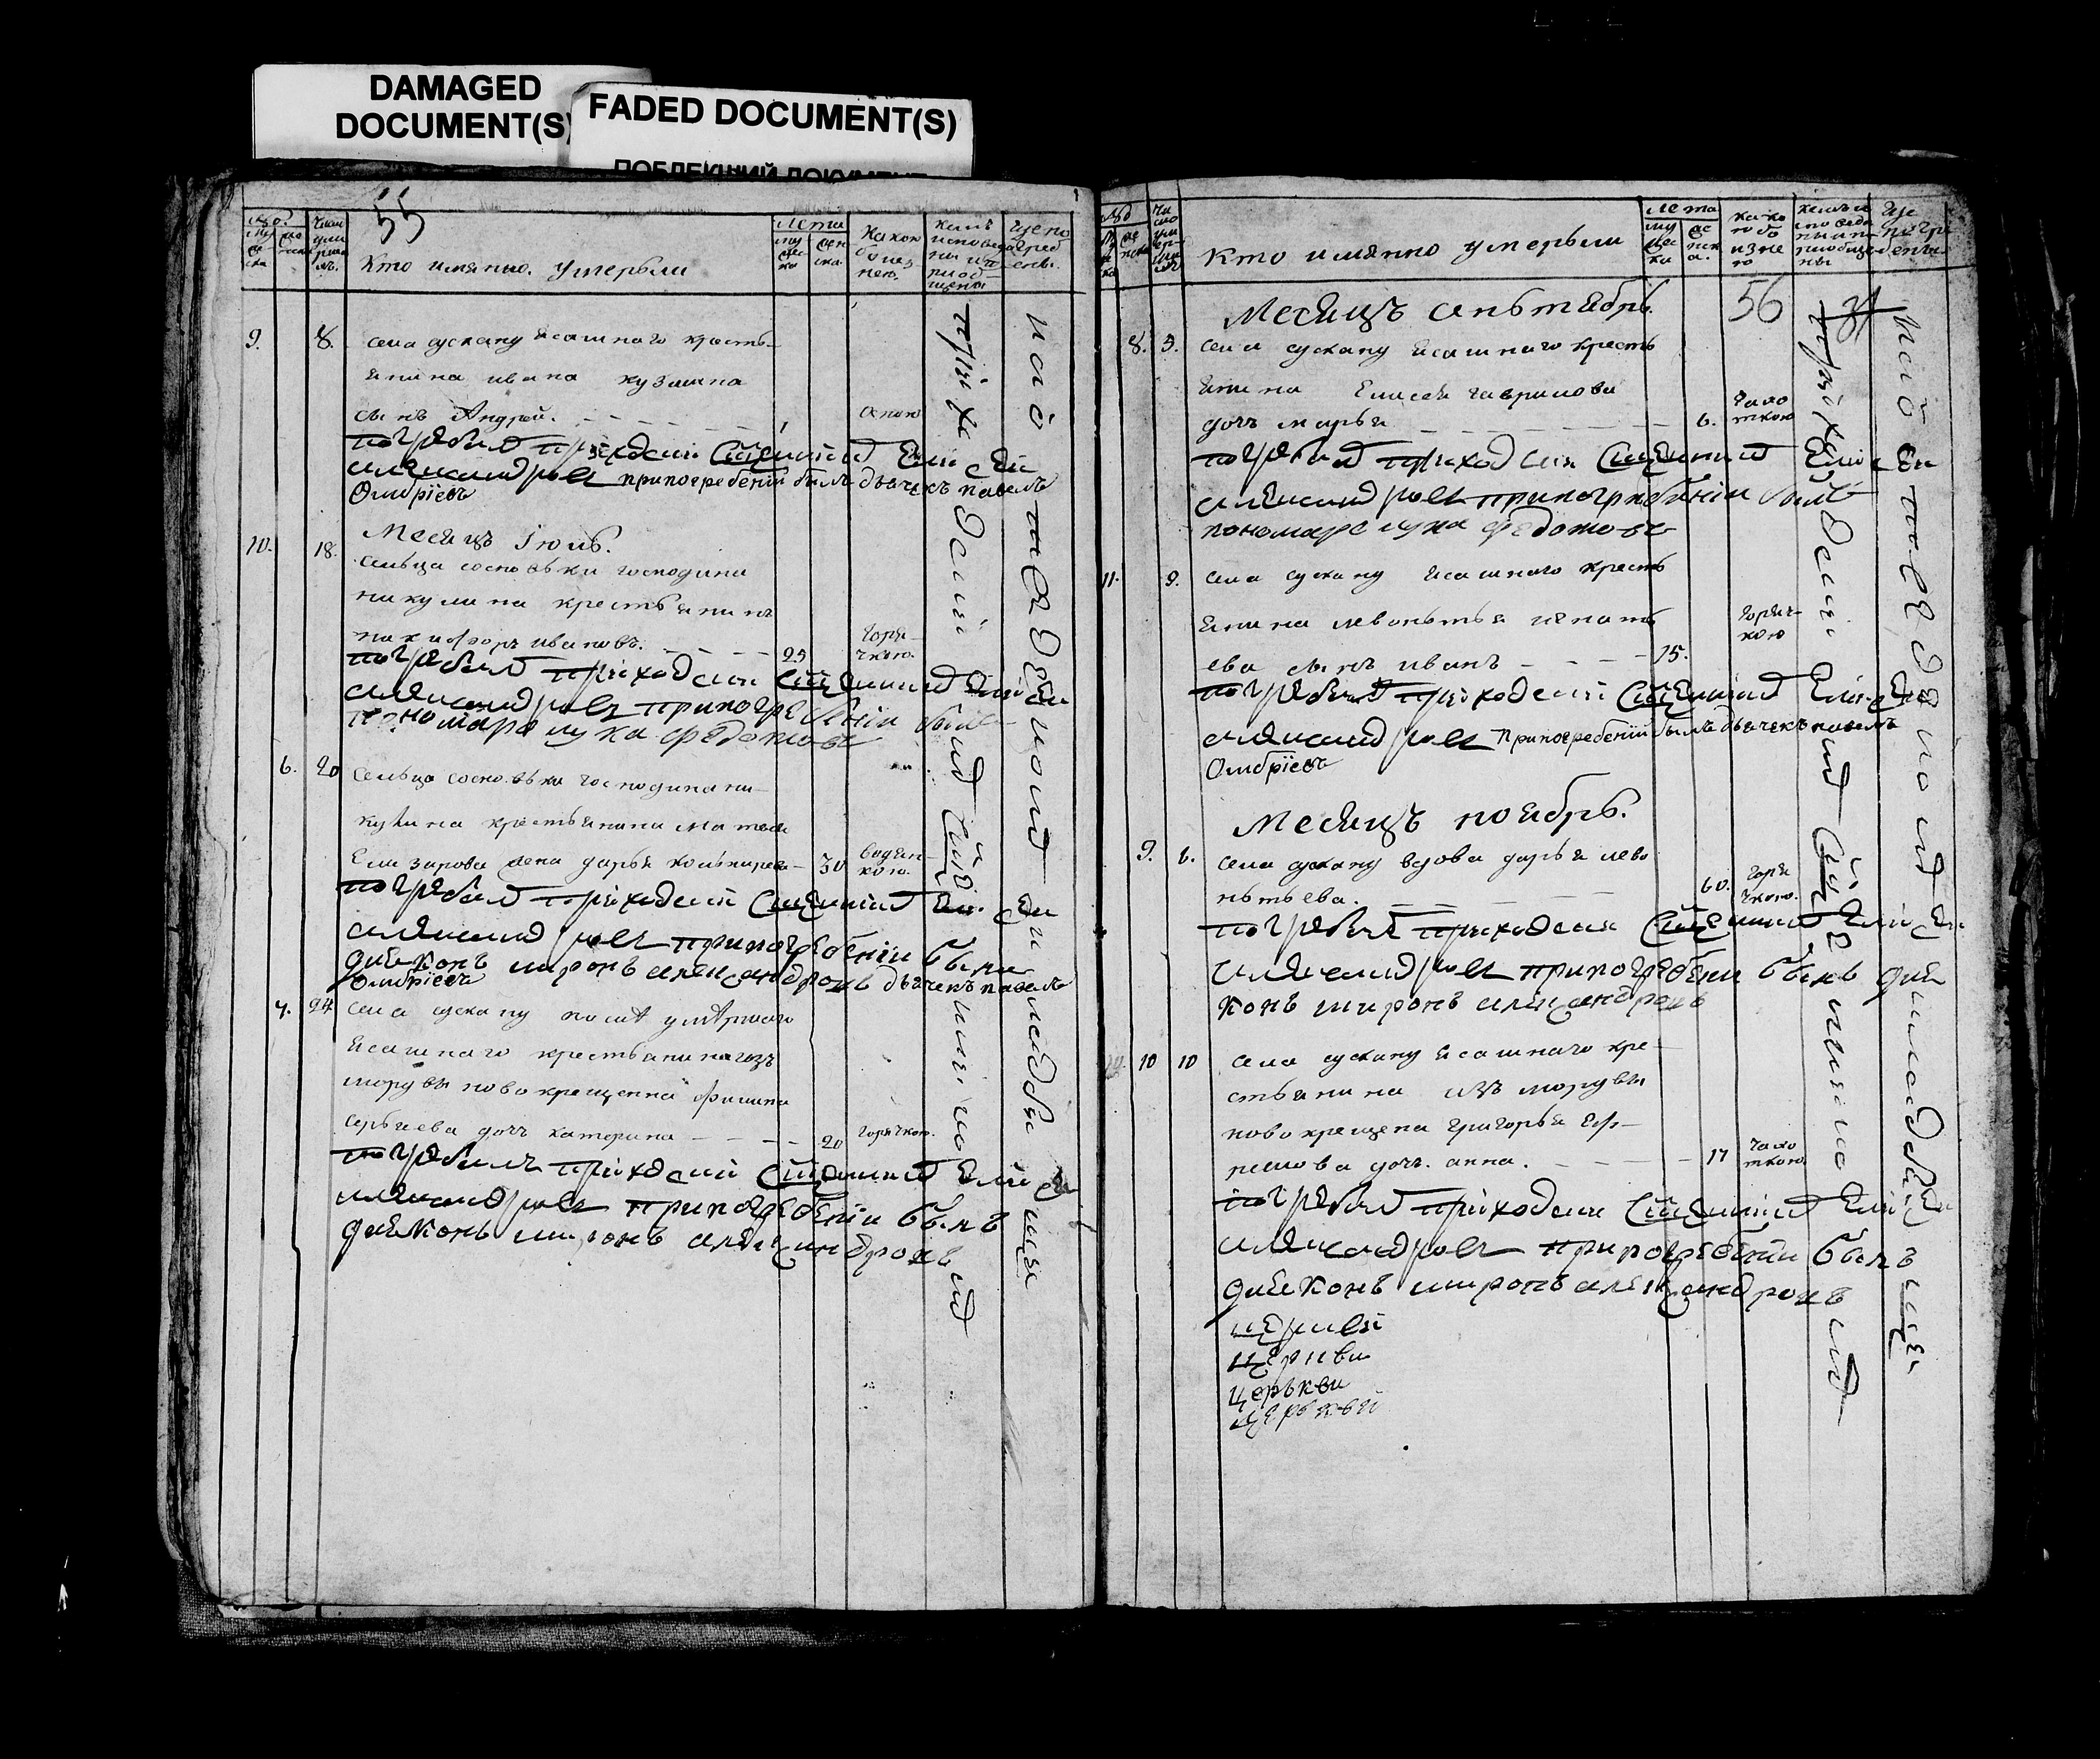 DAMAGED
DOCUMENT(S)
FADED DOCUMENT(S)
ПОБЛЕКШИЙ ДОКУМЕНТ
55
Кто имянно. умерьли
Лета
9. 8. села сускану ясашнаго кресть-
янина ивана кузмина
сынъ Андрей. 1 оспою
погребалъ приходской Священникъ Елисей
александровъ припогребенїи былъ дьячекъ павелъ
Дмитрїевъ
Месяцъ Iюль.
10. 18. сельца сосновьки господина
никулина крестьянинъ
никифоръ ивановъ. 25 горя-
чкою.
погребалъ приходской Священникъ Елисей
александровъ припогребенїи былъ
пономарь лука федотовъ
6. 20 сельца сосновьки господина ни-
кулина крестьянина
Елизарова жена дарья 30 водян-
кою.
погребалъ приходской Священникъ Елисей
александровъ припогребенїи были
дияконъ миронъ александровъ дьячекъ павелъ
Дмитрїевъ
7. 24 села сускану после умершаго
ясашнаго крестьянина изъ
мордвы новокрещенна филипа
сергиева дочь катерина 20 горячкою.
погребалъ приходской Священникъ Елисей
александровъ припогребенїи былъ
дияконъ миронъ александровъ
приходской Священникъ
Кто имянно умерьли
Лета
56
Месяцъ сеньтябрь.
8. 3. села сускану ясашнаго кресть
янина Елисея гаврилова
дочь марья 6. чахо
ткою
погребалъ приходской Священникъ Елисей
александровъ припогребенїи былъ
пономарь лука федотовъ
11. 9. села сускану ясашнаго кресть
янина левонтья игнать
ева сынъ иванъ 15. горяч-
кою
погребалъ приходской Священникъ Елисей
александровъ припогребенїи былъ дьячекъ павелъ
Дмитрїевъ
Месяцъ ноябрь.
9. 6. села сускану вдова дарья лево
нтьева. 60. горя
чкою.
погребалъ приходской Священникъ Елисей
александровъ припогребени былъ дия
конъ миронъ александровъ
10 10 села сускану ясашнаго кре-
стьянина изъ мордвы
новокрещена григорья еф-
ремова дочь анна. 17 чахо
ткою.
погребалъ приходской Священникъ Елисей
александровъ припогребенїи былъ
дияконъ миронъ александровъ
церкви
церкви
церькви
церькви
приходской Священникъ